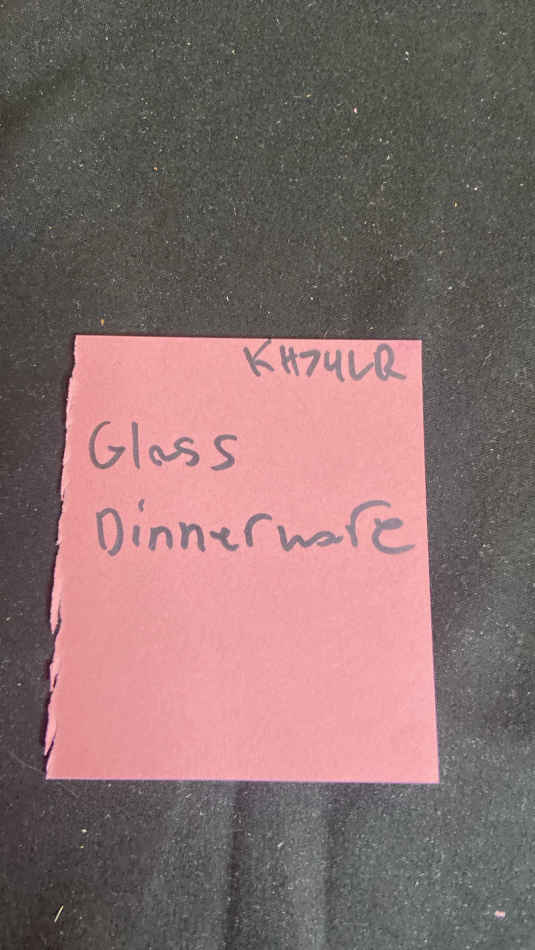 KH74LR
Glass
Dinnerware